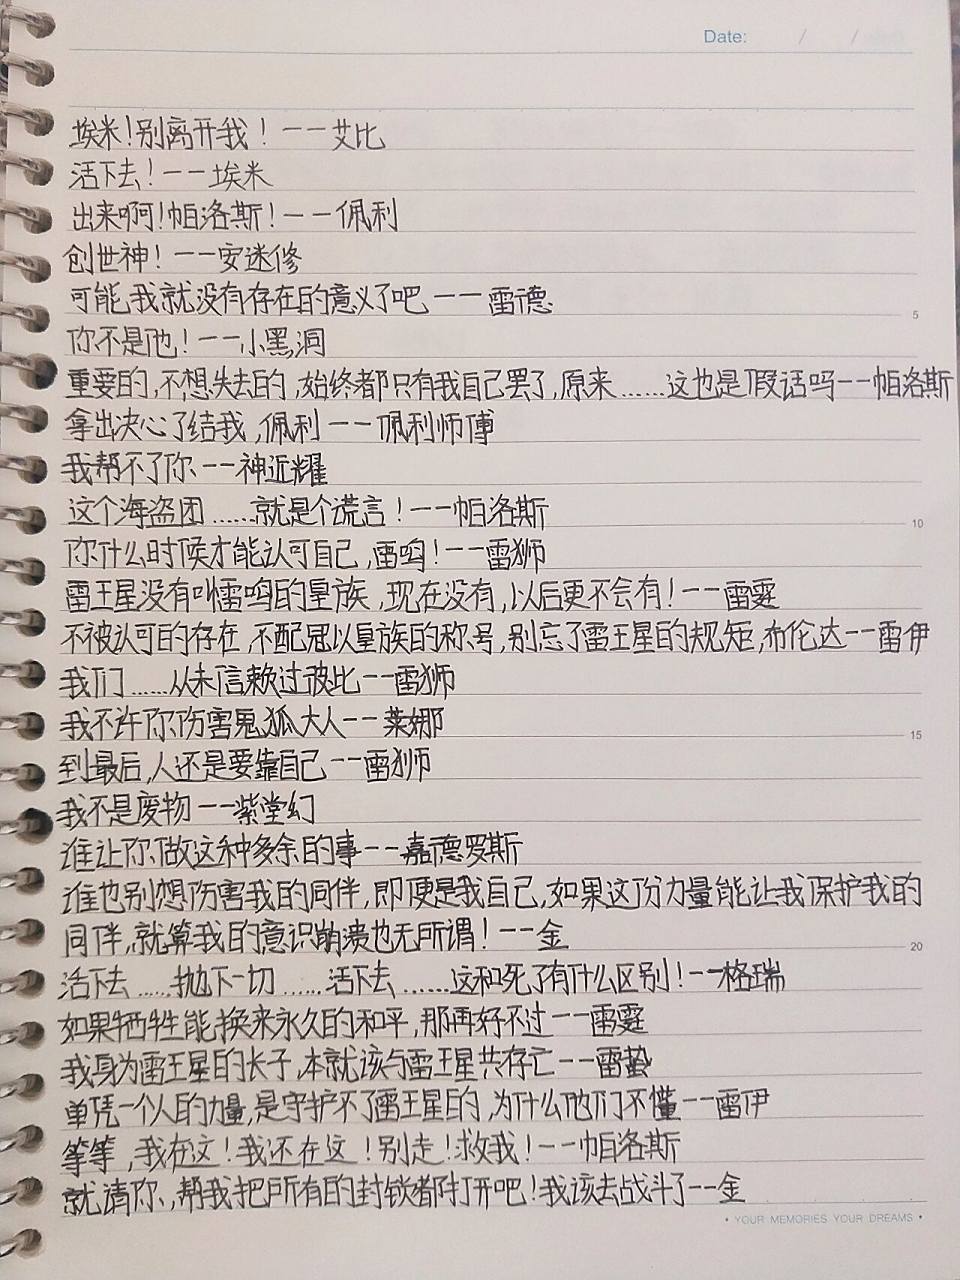 Date: / /
埃米!别离开我!——艾比
活下去!——埃米
出来啊!帕洛斯!——佩利
创世神!——安迷修
可能,我就没有存在的意义了吧——雷德
你不是他!——小黑洞
5
重要的,不想失去的,始终都只有我自己罢了,原来……这也是假话吗——帕洛斯
拿出决心了结我,佩利——佩利师傅
我帮不了你——神近耀
这个海盗团……就是个谎言!——帕洛斯
10
你什么时候才能认可自己,雷鸣!——雷狮
雷王星没有叫雷鸣的皇族,现在没有,以后更不会有!——雷霆
不被认可的存在,不配冠以皇族的称号,别忘了雷王星的规矩,布伦达——雷伊
我们……从未信赖过彼此——雷狮
我不许你伤害鬼狐大人——莱娜
15
到最后,人还是要靠自己——雷狮
我不是废物——紫堂幻
谁让你做这种多余的事——嘉德罗斯
谁也别想伤害我的同伴,即便是我自己,如果这份力量能让我保护我的
同伴,就算我的意识崩溃也无所谓!——金
20
活下去……抛下一切……活下去……这和死了有什么区别!——格瑞
如果牺牲能换来永久的和平,那再好不过——雷霆
我身为雷王星的长子,本就该与雷王星共存亡——雷蛰
单凭一个人的力量,是守护不了雷王星的,为什么他们不懂——雷伊
等等,我在这!我还在这!别走!救我!——帕洛斯
就请你,帮我把所有的封锁都打开吧!我该去战斗了——金
• YOUR MEMORIES YOUR DREAMS •